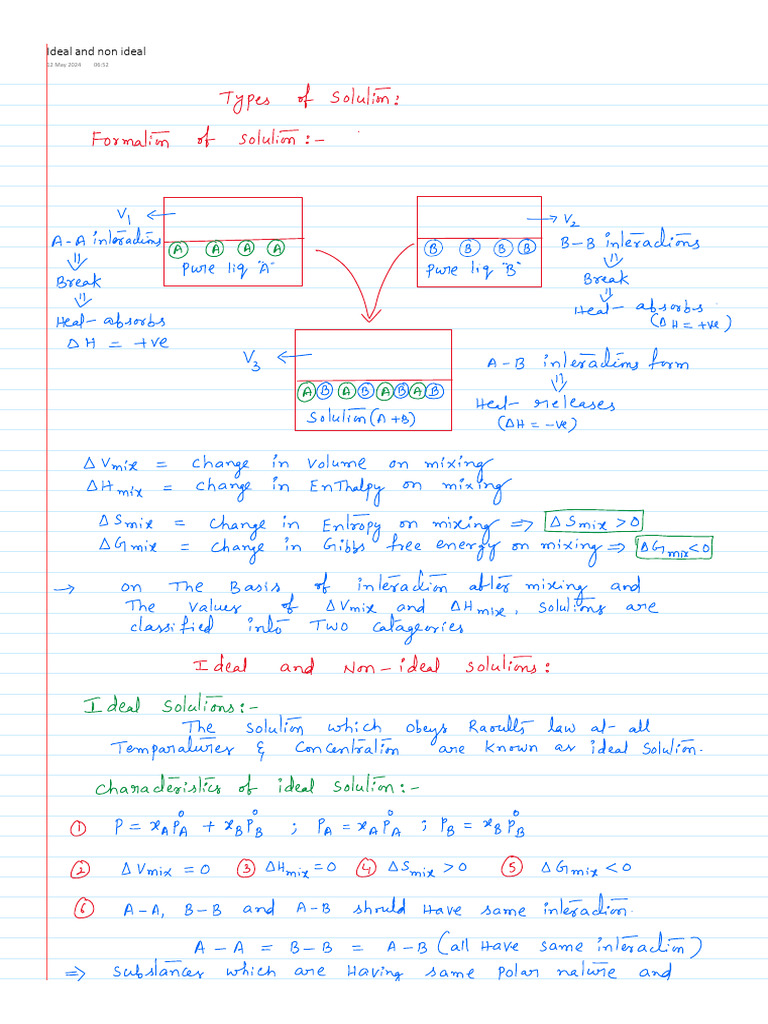 Ideal and non ideal
12 May 2024 06:52
Types of Solution:
Formation of solution:-
V₁
V₂
A-A interactions
A A A A
B B B B
B-B interactions
Pure liq "A"
Pure liq "B"
Break
Break
Heat absorbs
Heat absorbs
ΔH = +ve
(ΔH = +ve)
V₃
A-B interactions form
A B A B A B A B
Heat releases
Solution (A+B)
(ΔH = -ve)
ΔVmix = change in volume on mixing
ΔHmix = change in EnThalpy on mixing
ΔSmix = change in Entropy on mixing ⇒ ΔSmix > 0
ΔGmix = change in Gibbs free energy on mixing ⇒ ΔGmix < 0
→ on The Basis of interaction after mixing and
The values of ΔVmix and ΔHmix, solutions are
classified into TWO catageories
Ideal and Non-ideal solutions:
Ideal Solutions:-
The solution which obeys Raoults law at all
Temparatures & Concentration are known as ideal solution.
Characteristics of ideal solution:-
① P = xA P°A + xB P°B ; PA = xA P°A ; PB = xB P°B
② ΔVmix = 0 ③ ΔHmix = 0 ④ ΔSmix > 0 ⑤ ΔGmix < 0
⑥ A-A, B-B and A-B should have same interaction.
A-A = B-B = A-B (all have same interaction)
⇒ substances which are having same polar nature and